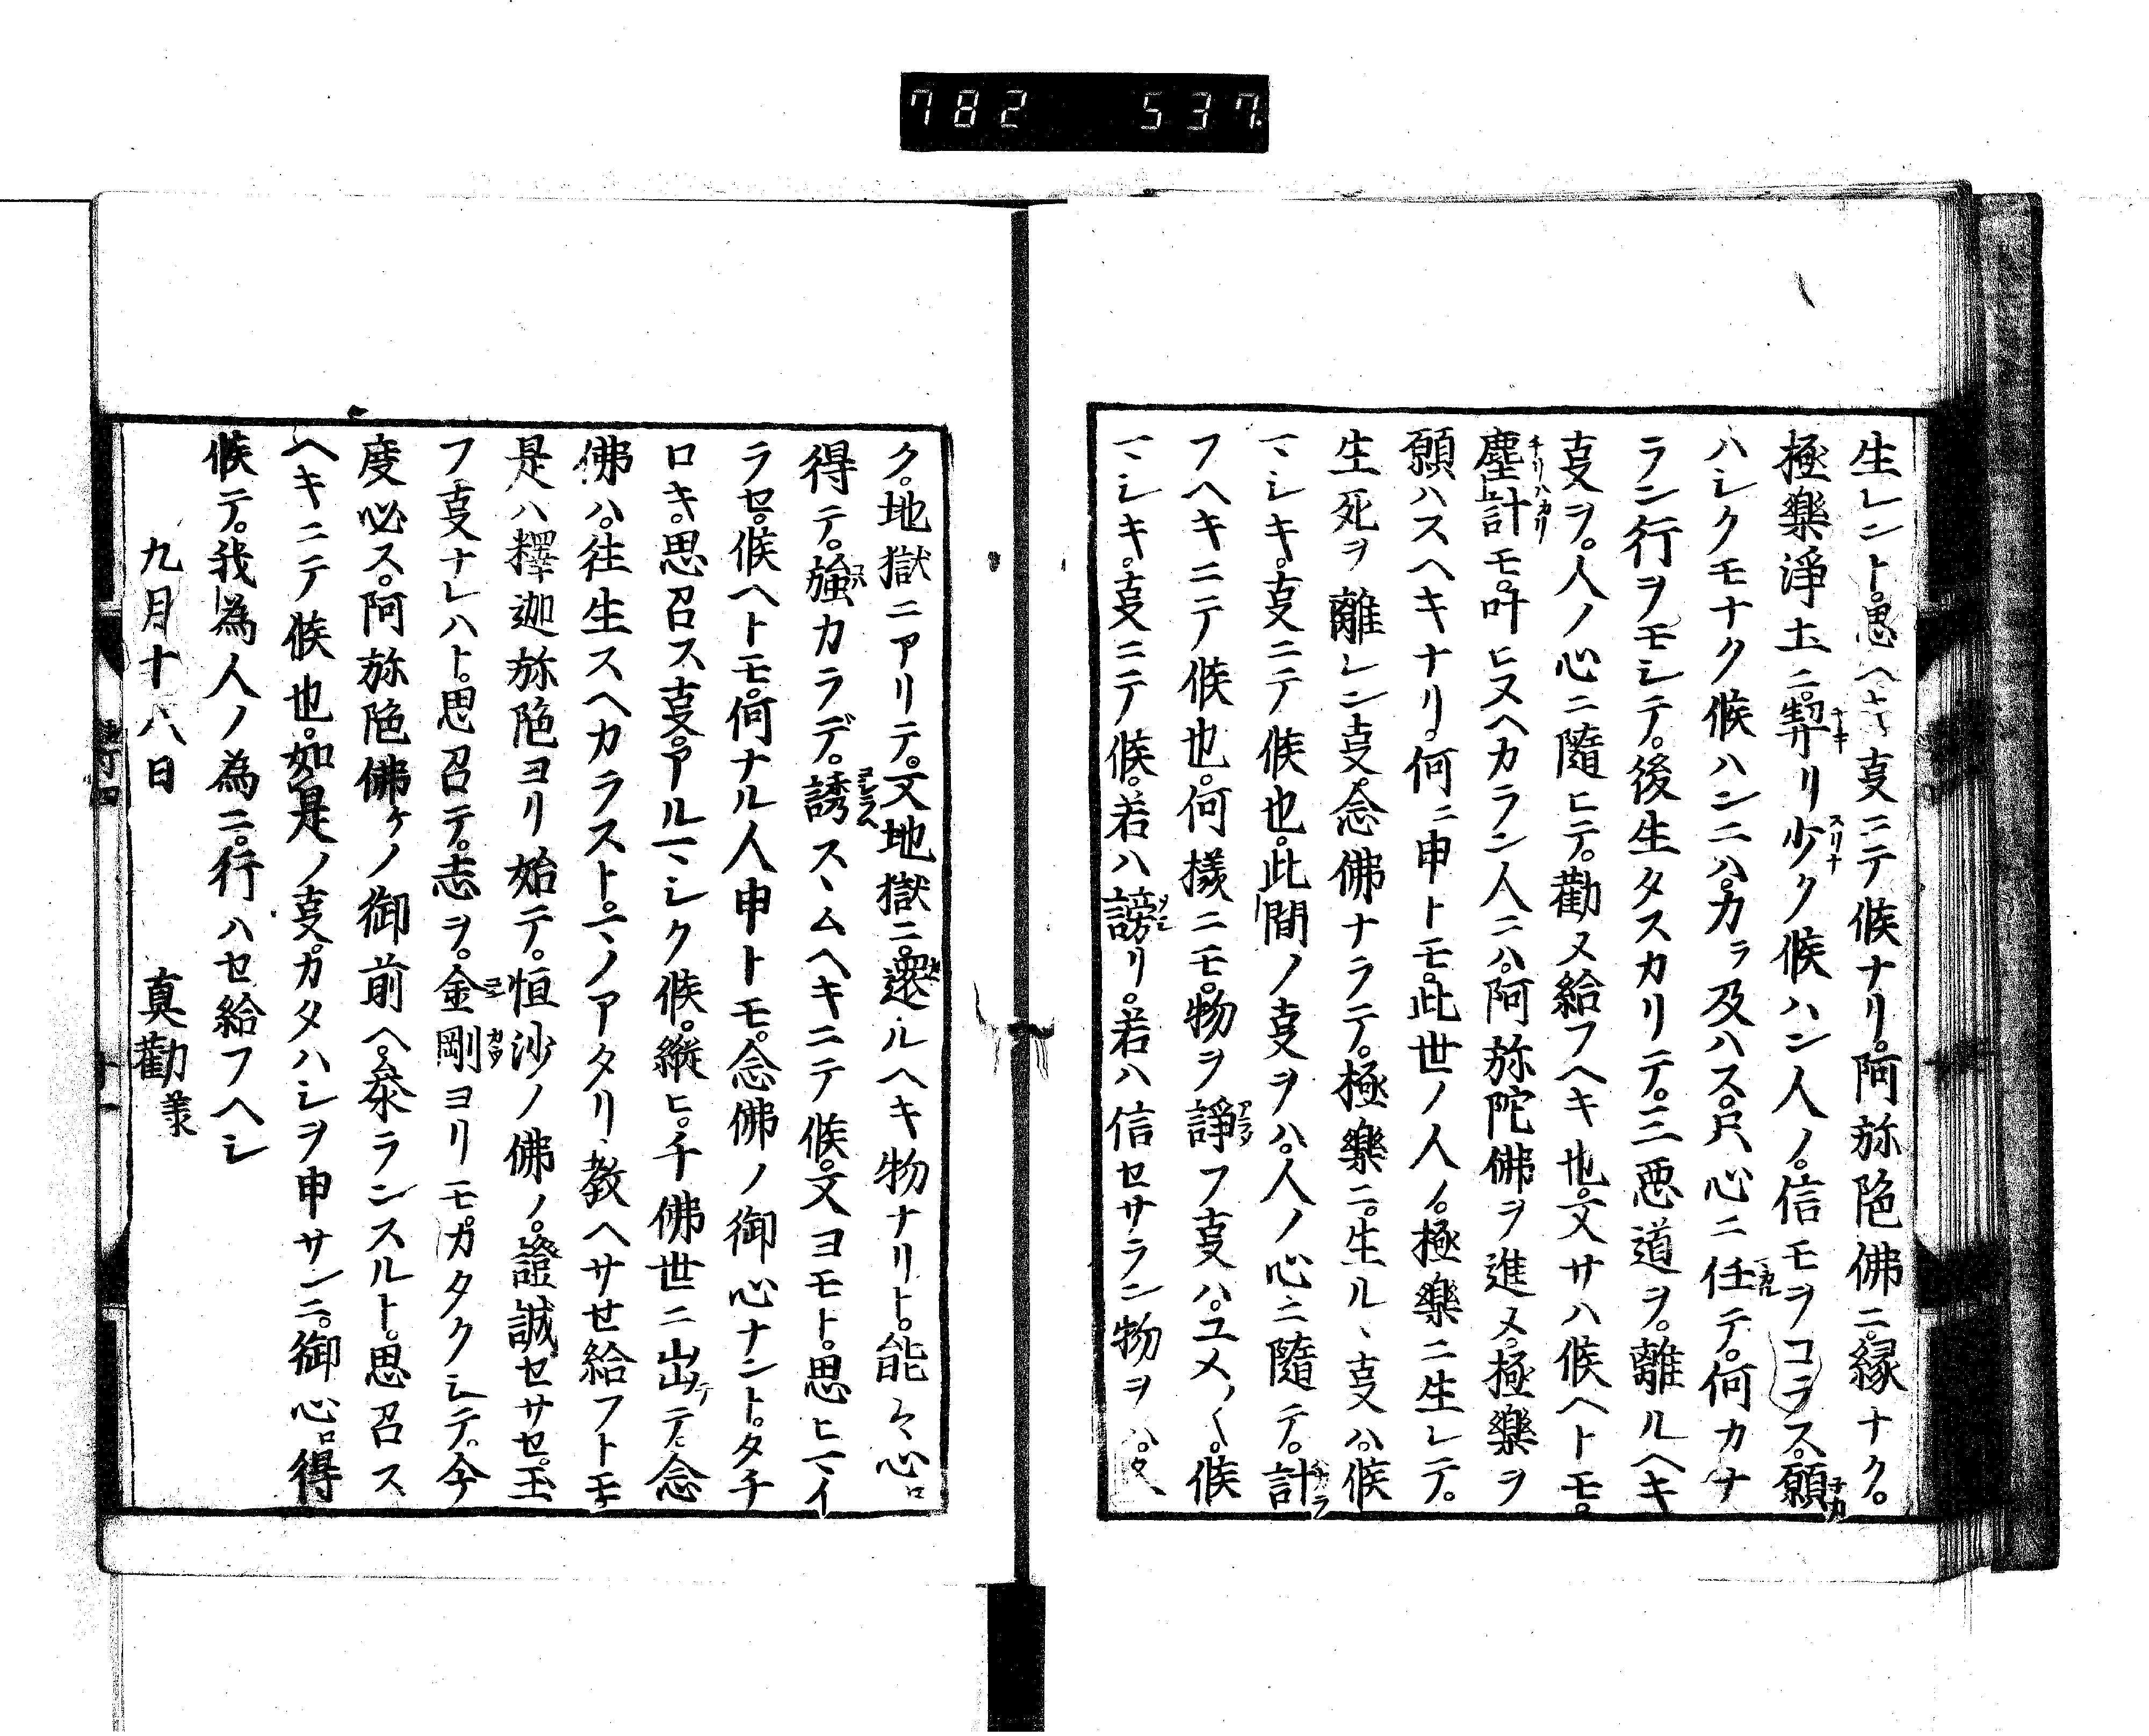 782 537
生レント。思ヘキ叓ニテ候ナリ。阿弥陁佛ニ。縁ナク。
極樂淨土ニ。契リ少ク候ハン人ノ。信モヲコラス。願
ハシクモナク候ハンニハ。力ラ及ハス。只心ニ任テ。何カナ
ラン行ヲモシテ。後生タスカリテ。三悪道ヲ。離ルヘキ
叓ヲ。人ノ心ニ隨ヒテ。勸メ給フヘキ也。又サハ候ヘトモ。
塵計モ。叶ヒヌヘカラン人ニハ。阿弥陀佛ヲ進メ。極樂ヲ
願ハスヘキナリ。何ニ申トモ。此世ノ人ノ。極樂ニ生レテ。
生死ヲ離レン叓。念佛ナラテ。極樂ニ。生ル丶叓ハ。候
マシキ。叓ニテ候也。此間ノ叓ヲハ。人ノ心ニ隨テ。計
フヘキニテ候也。何樣ニモ。物ヲ諍フ叓ハ。ユメ〱。候
マシキ。叓ニテ候。若ハ謗リ。若ハ信セサラン物ヲハ。久
ク。地獄ニアリテ。又地獄ニ。還ルヘキ物ナリト。能々心ロ
得テ。強カラデ。誘ス丶ムヘキニテ候。又ヨモト。思ヒマイ
ラセ。候ヘトモ。何ナル人申トモ。念佛ノ御心ナント。タチ
ロキ。思召ス叓。アルマシク候。縱ヒ。千佛世ニ出テ。念
佛ハ。往生スヘカラスト。マノアタリ教ヘサせ給フトモ
是ハ釋迦弥陁ヨリ始テ。恒沙ノ佛ノ。證誠セサセ。玉
フ叓ナレハト。思召テ。志ヲ。金剛ヨリモ。カタクシテ。今
度必ス。阿弥陁佛ケノ御前ヘ。参ランスルト。思召ス
ヘキニテ候也。如是ノ叓。カタハシヲ申サンニ。御心ロ得
候テ。我為人ノ為ニ。行ハセ給フヘシ
九月十八日 真勸